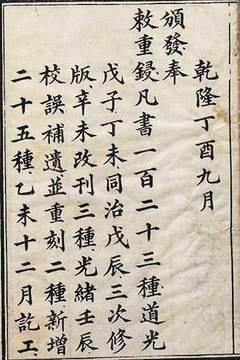 乾隆丁酉九月
頒發奉
敕重鋟凡書一百二十三種道光
戊子丁未同治戊辰三次修
版辛未改刊三種光緒壬辰
校誤補遺並重刻二種新增
二十五種乙未十二月訖工